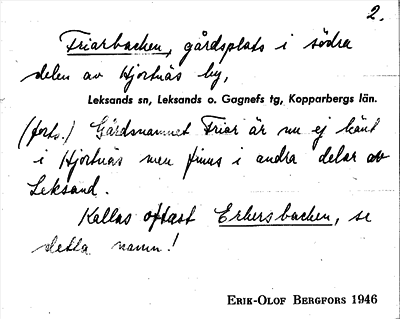 2.
Friarbacken, gårdsplats i södra
delen av Hjortnäs by,
Leksands sn, Leksands o. Gagnefs tg, Kopparbergs län.
(forts.) Gårdsnamnet Friar är nu ej känt
i Hjortnäs men finns i andra delar av
Leksand.
Kallas oftast Erkersbacken, se
detta namn!
ERIK-OLOF BERGFORS 1946